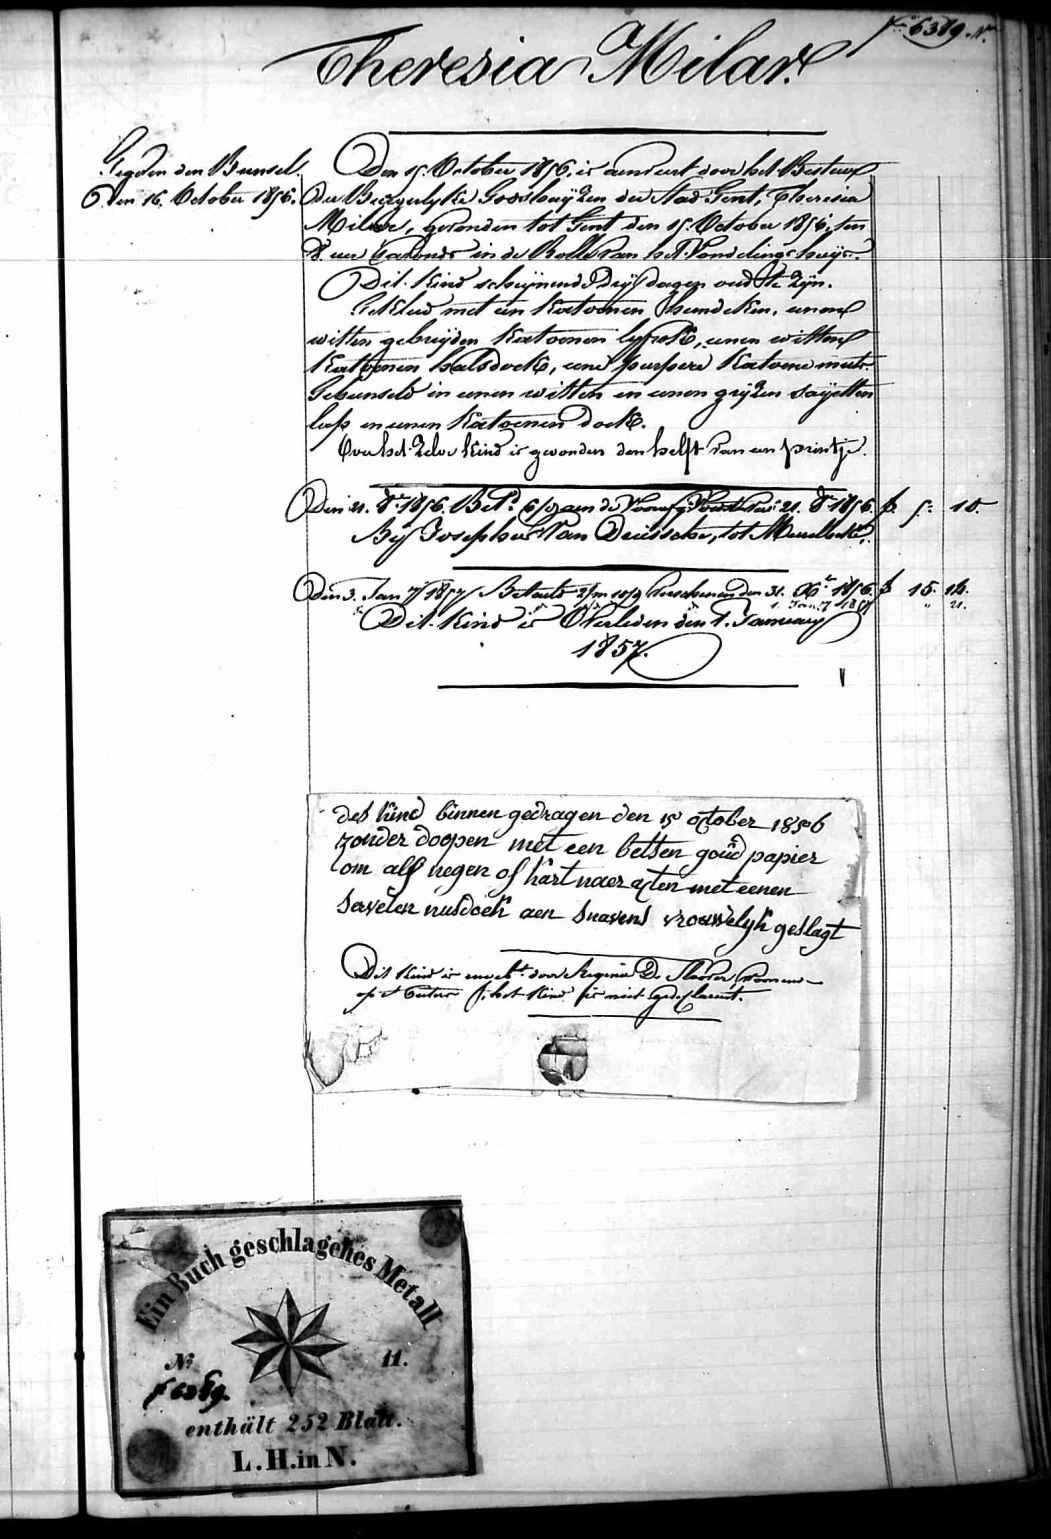 f° 6389. N.
Theresia Milar.
den Bunsel.
Den 16. October 1856.
Den 15 October 1856. is aenveert door het Bestuur
der Burgerlyke Godshuyzen der Stad Gent, Theresia
Milar, gevonden tot Gent den 15. October 1856, ten
8. ure in de Rolle van het Vondelingshuys.
Dit Kind schynende dry dagen oud te zyn.
Gekleed met een Katoenen hemdeken, eenen
witten gebryden Katoenen lyfrok, eenen witten
Katoenen halsdoek, eene purpere Katoene muts.
Gebunseld in eenen witten en eenen gryzen sayetten
lap en eenen Katoenen doek.
Op het zelve Kind is gevonden den helft van een printje.
Den 21. 8r 1856. Bet. aen de 21. 8r 1856. f 5: 15.
By Josephus Van tot
Den 3. Jany 1857 Betaelt den 31. Xr 1856. f 15. 14.
1. Jany 1857 " 21.
Dit Kind is Overleden den 1. January
1857.
det kind binnen gedragen den 15 october 1856
zonder doopen met een goud papier
om alf negen of hart naer met eenen
servelen nusdoek aen vrouwelyk geslagt
Dit Kind is door Regina De
op het Kind is niet gedeclareert.
Ein Buch geschlagenes Metall
No 11.
f° 6389.
enthält 252 Blatt.
L.H.in N.